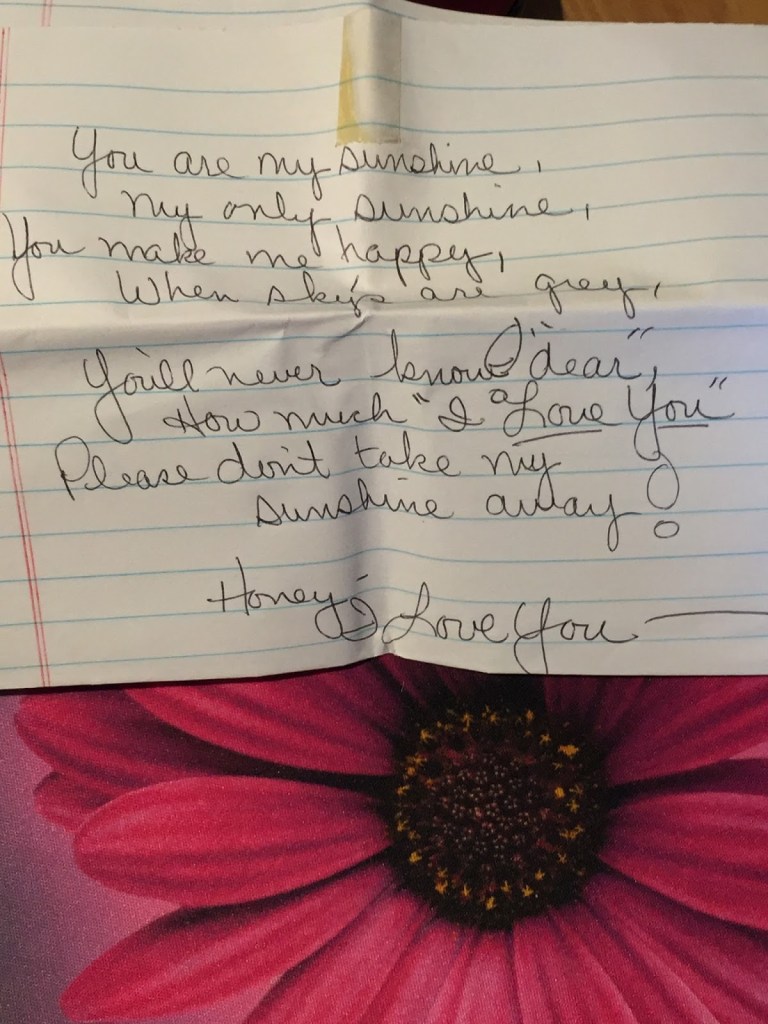 You are my sunshine,
My only sunshine,
You make me happy,
When sky's are grey,
You'll never know "dear",
How much "I Love You"
Please don't take my
sunshine away!
Honey I Love You